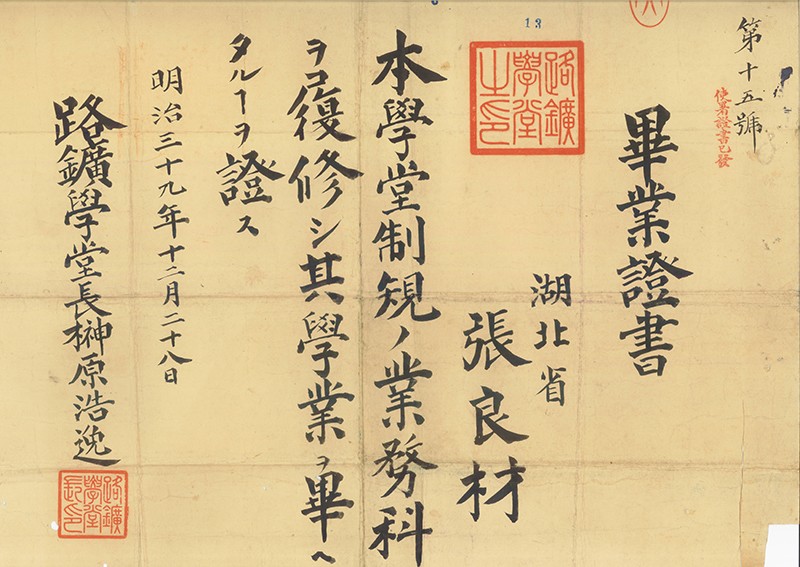 第十五號
使署證書已發
畢業證書
湖北省
張良材
13
路鑛學堂之印
本學堂制規ノ業務科
ヲ復修シ其學業ヲ畢ヘ
タルヿヲ證ス
明治三十九年十二月二十八日
路鑛學堂長榊原浩逸
路鑛學堂長印